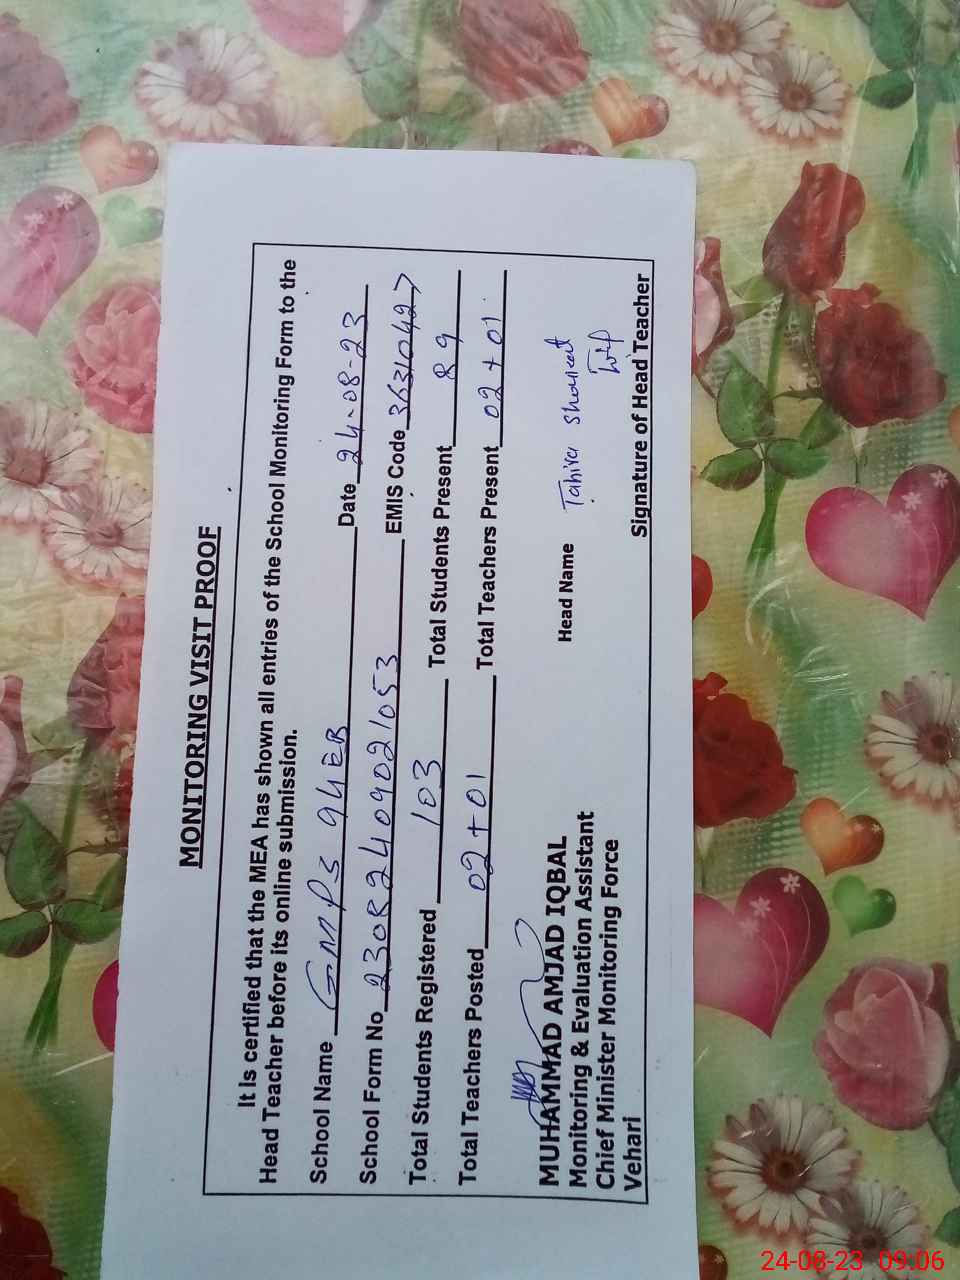 MONITORING VISIT PROOF
It Is certified that the MEA has shown all entries of the School Monitoring Form to the
Head Teacher before its online submission.
School Name GMPS 94EB Date 24-08-23
School Form No 23082409021053 EMIS Code 36310427
Total Students Registered 103 Total Students Present 89
Total Teachers Posted 02+01 Total Teachers Present 02+01
Head Name Tahira Shoukat
MUHAMMAD AMJAD IQBAL
Monitoring & Evaluation Assistant
Chief Minister Monitoring Force
Vehari
Signature of Head Teacher
24-08-23 09:06